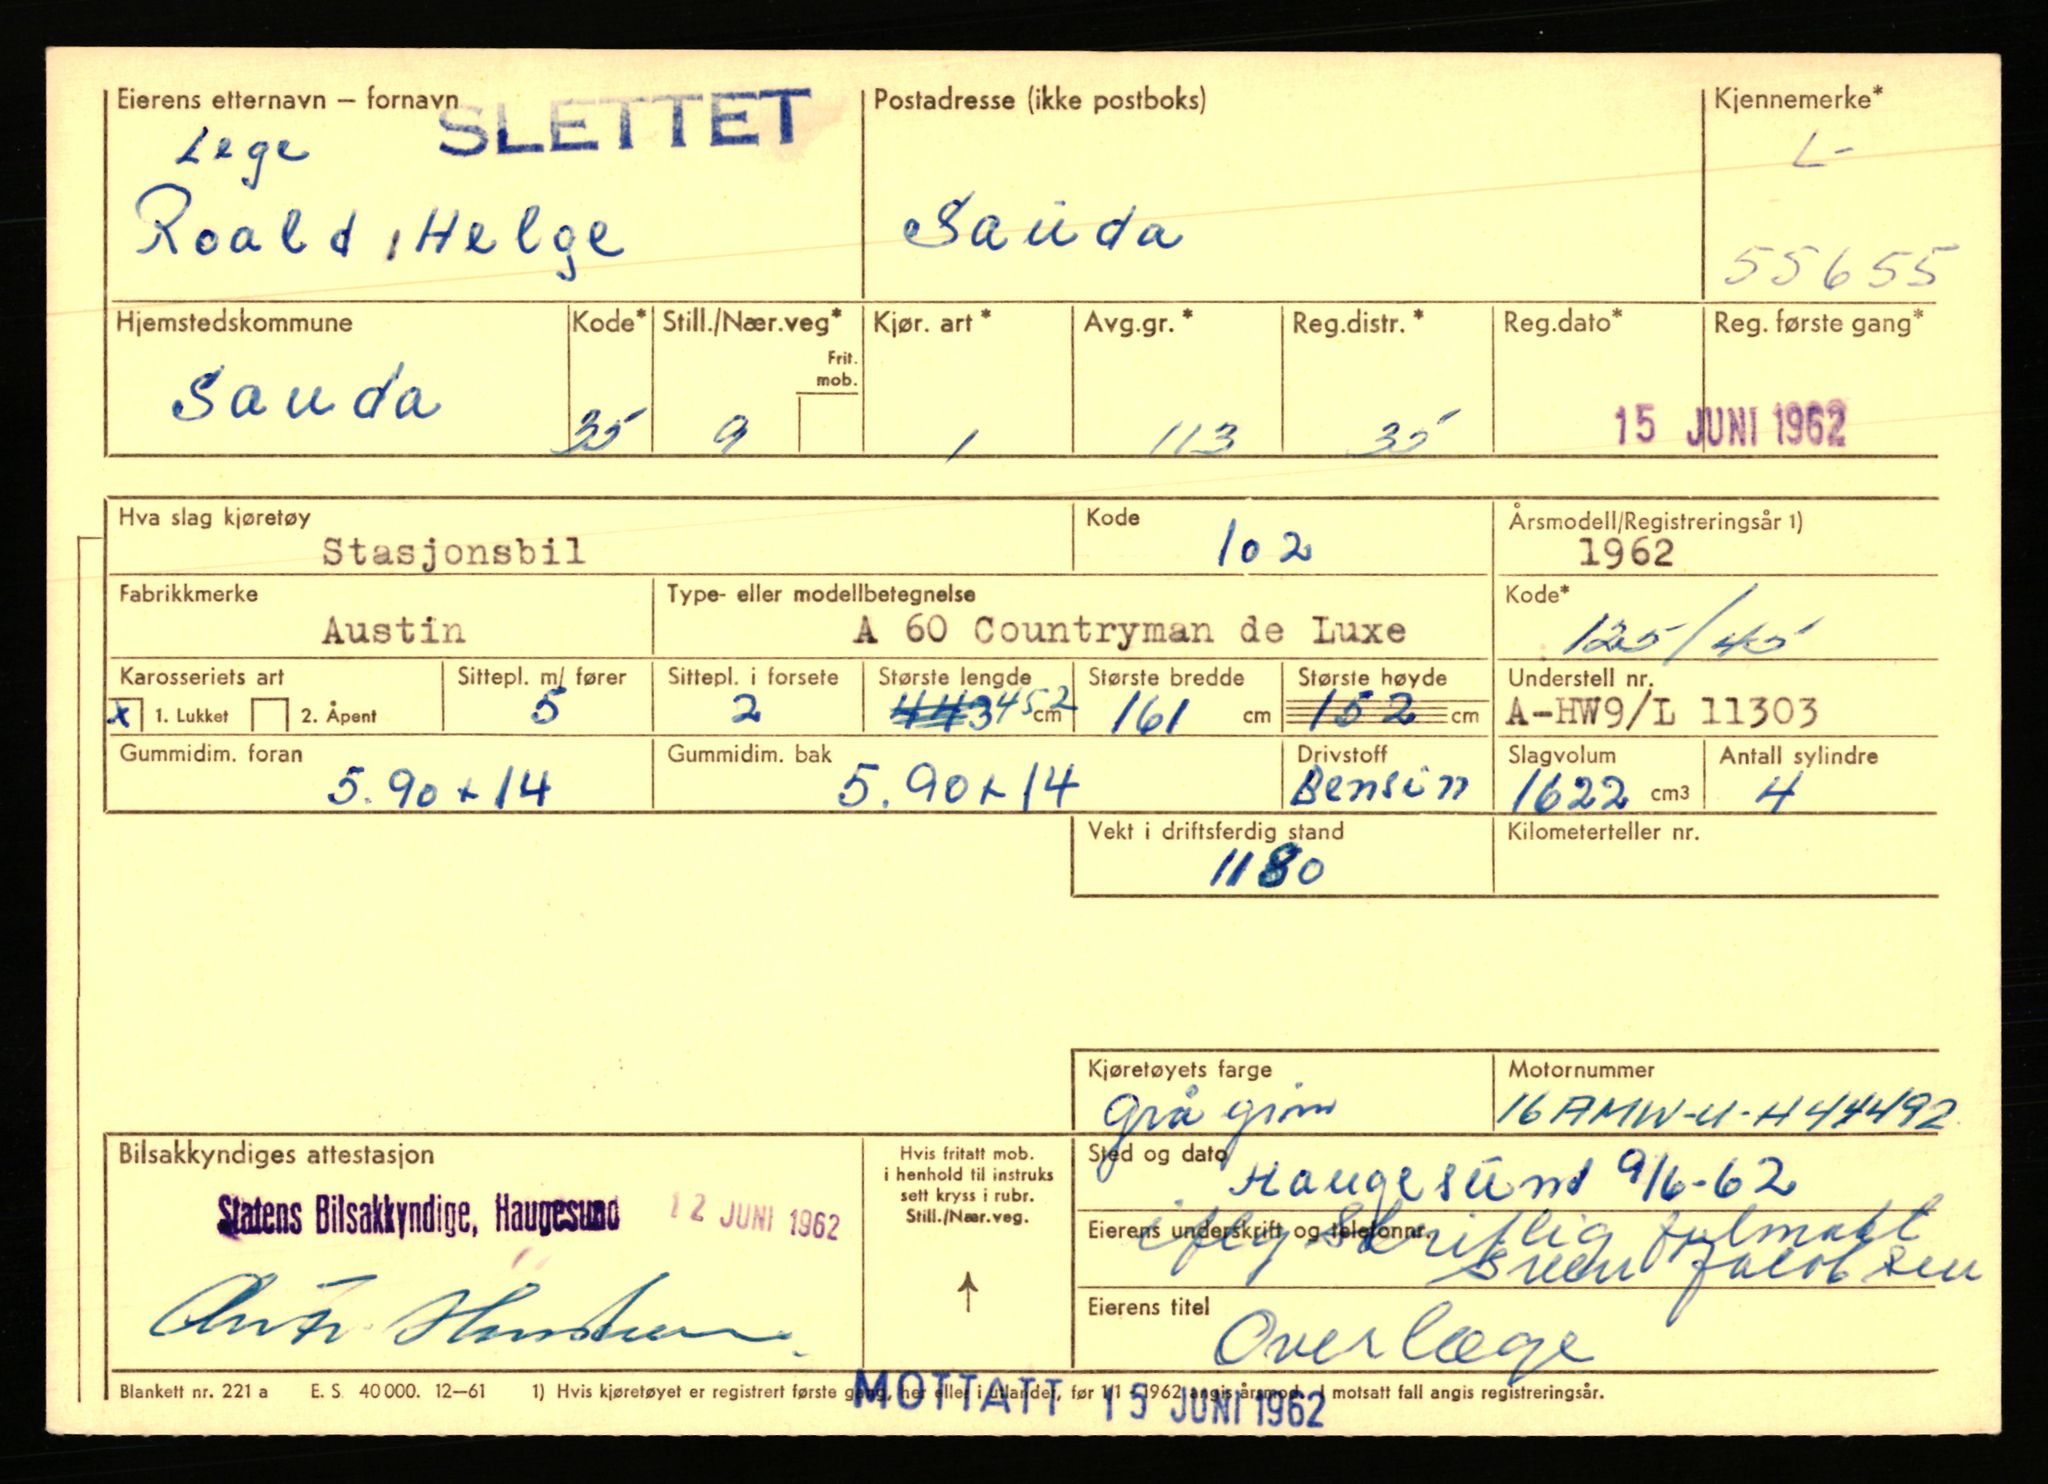 Eierens etternavn – fornavn SLETTET Postadresse (ikke postboks) Kjennemerke*
Lege L-
Roald, Helge Sauda 55655
Hjemstedskommune Kode* Still./Nær.veg* Kjør. art * Avg.gr. * Reg.distr. * Reg.dato* Reg. første gang*
Frit.
mob.
Sauda 35 9 1 113 35 15 JUNI 1962
Hva slag kjøretøy Kode Årsmodell/Registreringsår 1)
Stasjonsbil 102 1962
Fabrikkmerke Type- eller modellbetegnelse Kode*
Austin A 60 Countryman de Luxe 125/45
Karosseriets art Sittepl. m/ fører Sittepl. i forsete Største lengde Største bredde Største høyde Understell nr.
x 1. Lukket 2. Åpent 5 2 443 452 cm 161 cm 152 cm A-HW9/L 11303
Gummidim. foran Gummidim. bak Drivstoff Slagvolum Antall sylindre
5.90 x 14 5.90 x 14 Bensin 1622 cm3 4
Vekt i driftsferdig stand Kilometerteller nr.
1180
Kjøretøyets farge Motornummer
Grå grøn 16AMW-U-H44492
Bilsakkyndiges attestasjon Hvis fritatt mob. i henhold til instruks sett kryss i rubr. Still./Nær.veg. Sted og dato
Statens Bilsakkyndige, Haugesund 12 JUNI 1962 Haugesund 9/6-62
Eierens underskrift og telefonnr.
ifølg skriftlig fulmakt
Jacobsen
Eierens titel
Overlæge
Blankett nr. 221 a E. S. 40 000. 12–61 1) Hvis kjøretøyet er registrert første gang, her eller i utlandet, før 1/1 - 1962 angis årsmod. I motsatt fall angis registreringsår.
MOTTATT 15 JUNI 1962